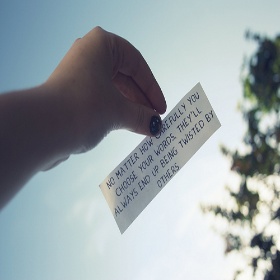 NO MATTER HOW CAREFULLY YOU
CHOOSE YOUR WORDS, THEY'LL
ALWAYS END UP BEING TWISTED BY
OTHERS.